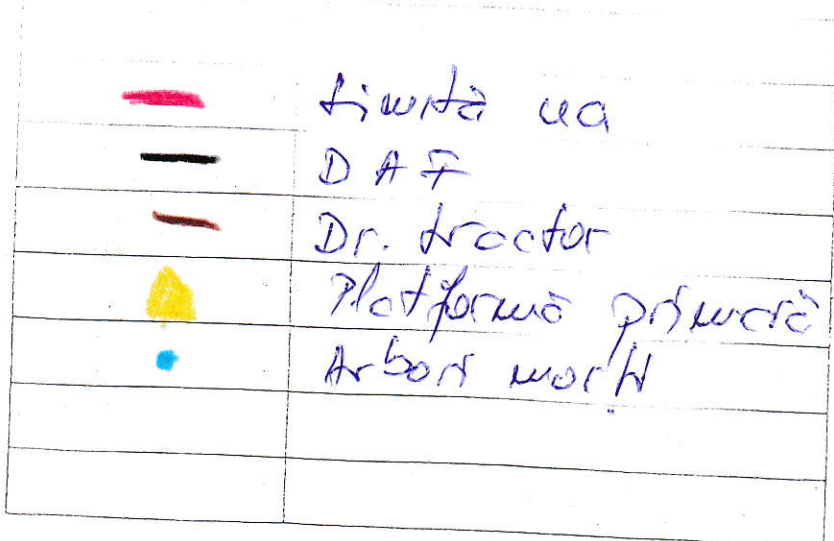 Limită ua
DAF
Dr. tractor
Platformă primară
Arbori morți